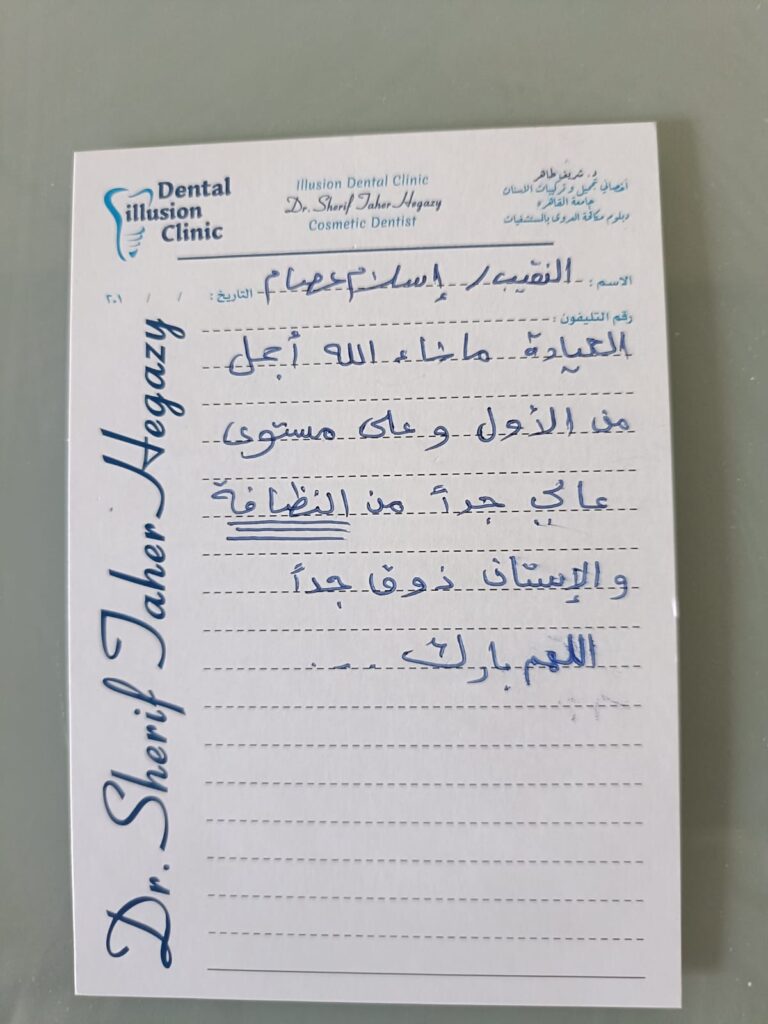 Dental
illusion
Clinic
Illusion Dental Clinic
Dr. Sherif Taher Hegazy
Cosmetic Dentist
د. شريف طاهر
أخصائي تجميل وتركيبات الاسنان
جامعة القاهرة
دبلوم مكافحة العدوى بالمستشفيات
الاسم : النقيب / إسلام عصام التاريخ : / / ٢٠١
رقم التليفون :
العيادة ماشاء الله أجمل
من الأول وعلى مستوى
عالي جداً من النظافة
والإستاف ذوق جداً
اللهم بارك ....
Dr. Sherif Taher Hegazy